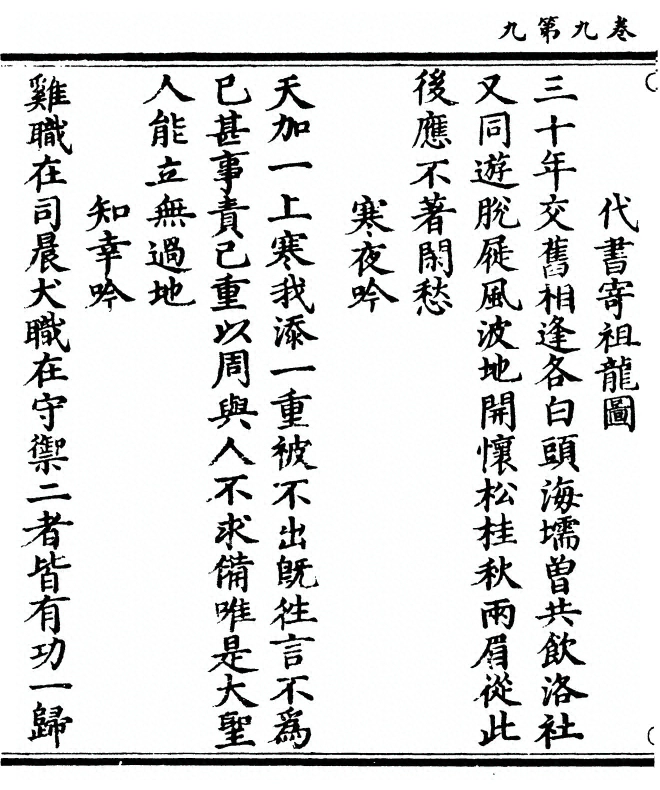 卷九第九
代書寄祖龍圖
三十年交舊相逢各白頭海壖曾共飲洛社
又同遊脫屣風波地開懷松桂秋兩眉從此
後應不著閑愁
寒夜吟
天加一上寒我添一重被不出既徃言不爲
已甚事責己重以周與人不求備唯是大聖
人能立無過地
知幸吟
雞職在司晨犬職在守禦二者皆有功一歸